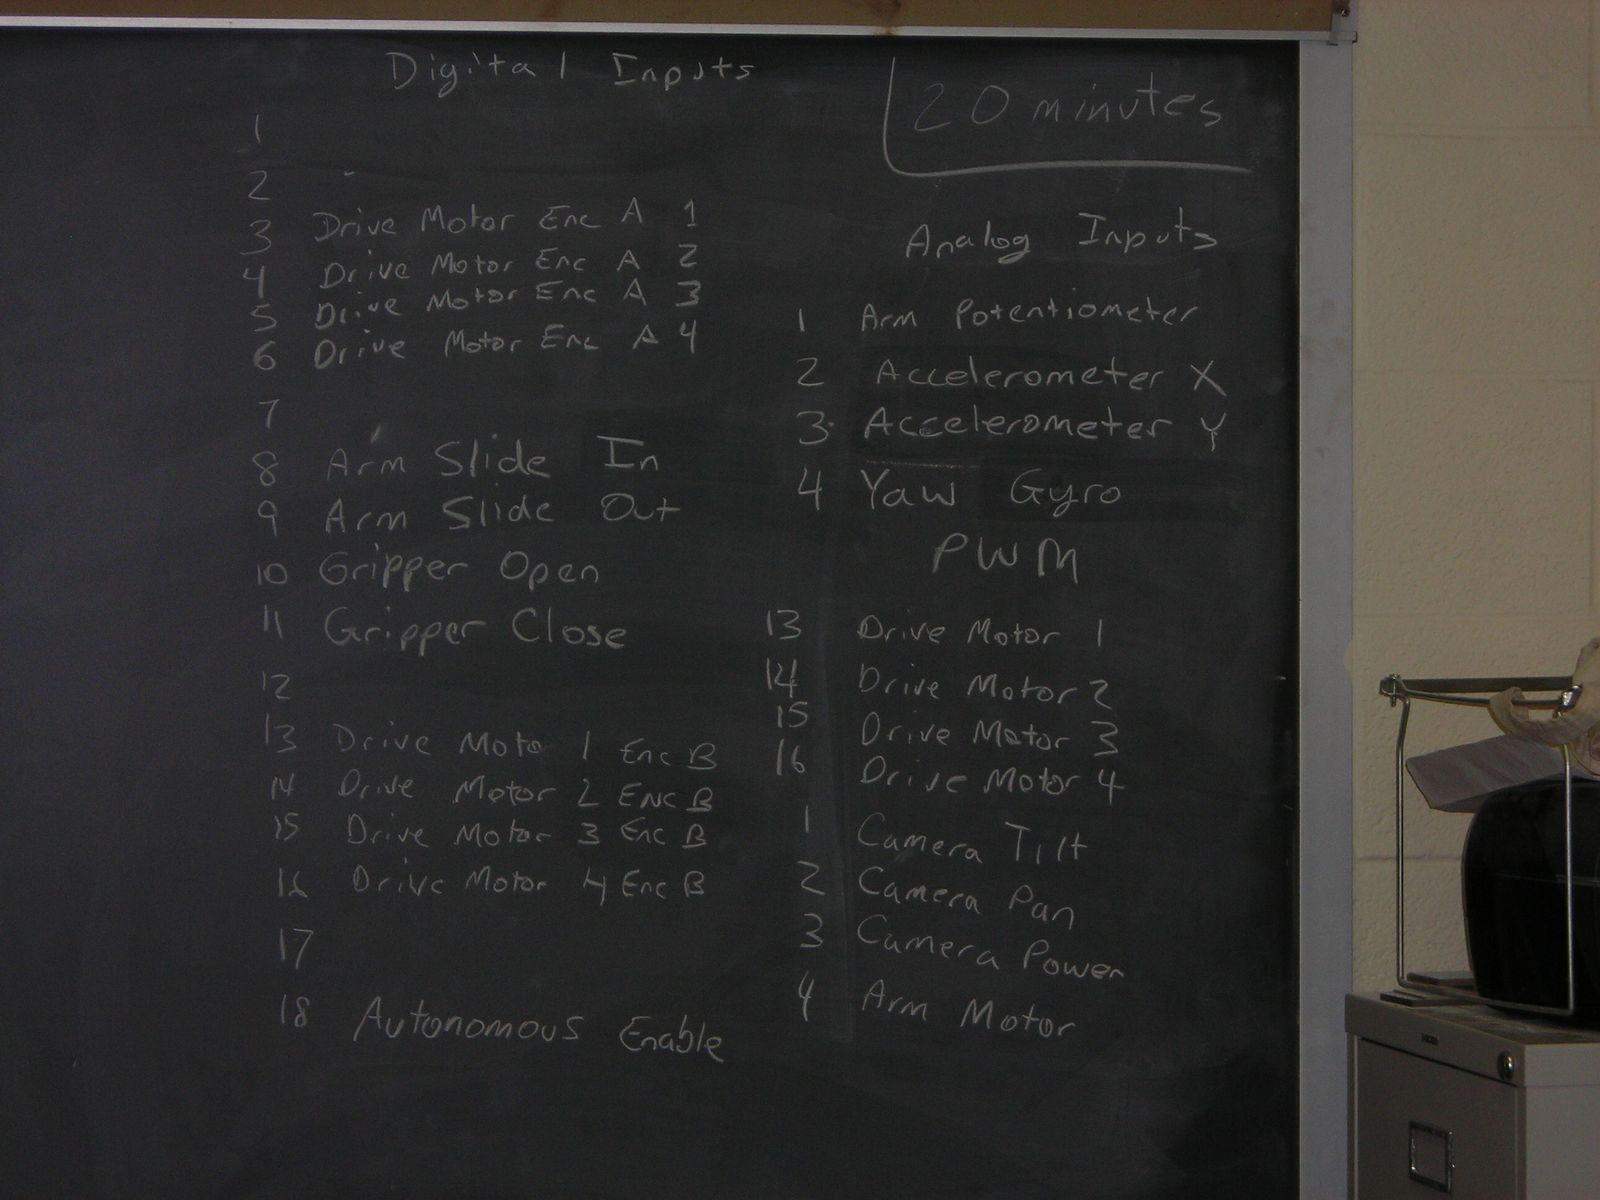 Digital Inputs
1
2
3 Drive Motor Enc A 1
4 Drive Motor Enc A 2
5 Drive Motor Enc A 3
6 Drive Motor Enc A 4
7
8 Arm Slide In
9 Arm Slide Out
10 Gripper Open
11 Gripper Close
12
13 Drive Moto 1 Enc B
14 Drive Motor 2 Enc B
15 Drive Motor 3 Enc B
16 Drive Motor 4 Enc B
17
18 Autonomous Enable
20 minutes
Analog Inputs
1 Arm Potentiometer
2 Accelerometer X
3 Accelerometer Y
4 Yaw Gyro
PWM
13 Drive Motor 1
14 Drive Motor 2
15 Drive Motor 3
16 Drive Motor 4
1 Camera Tilt
2 Camera Pan
3 Camera Power
4 Arm Motor